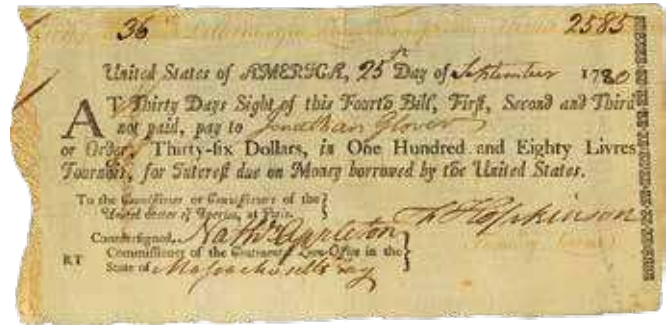 36 2585
United States of AMERICA, 25th Day of September 1780
AT Thirty Days Sight of this Fourth Bill, First, Second and Third
not paid, pay to Jonathan Glover
or Order, Thirty-six Dollars, in One Hundred and Eighty Livres
Tournois, for Interest due on Money borrowed by the United States.
To the Commissioner or Commissioners of the
United States of America, at Paris.
Hopkinson
Countersigned, Nathl. Appleton
RT Commissioner of the Continental Loan-Office in the
State of Massachusetts Bay